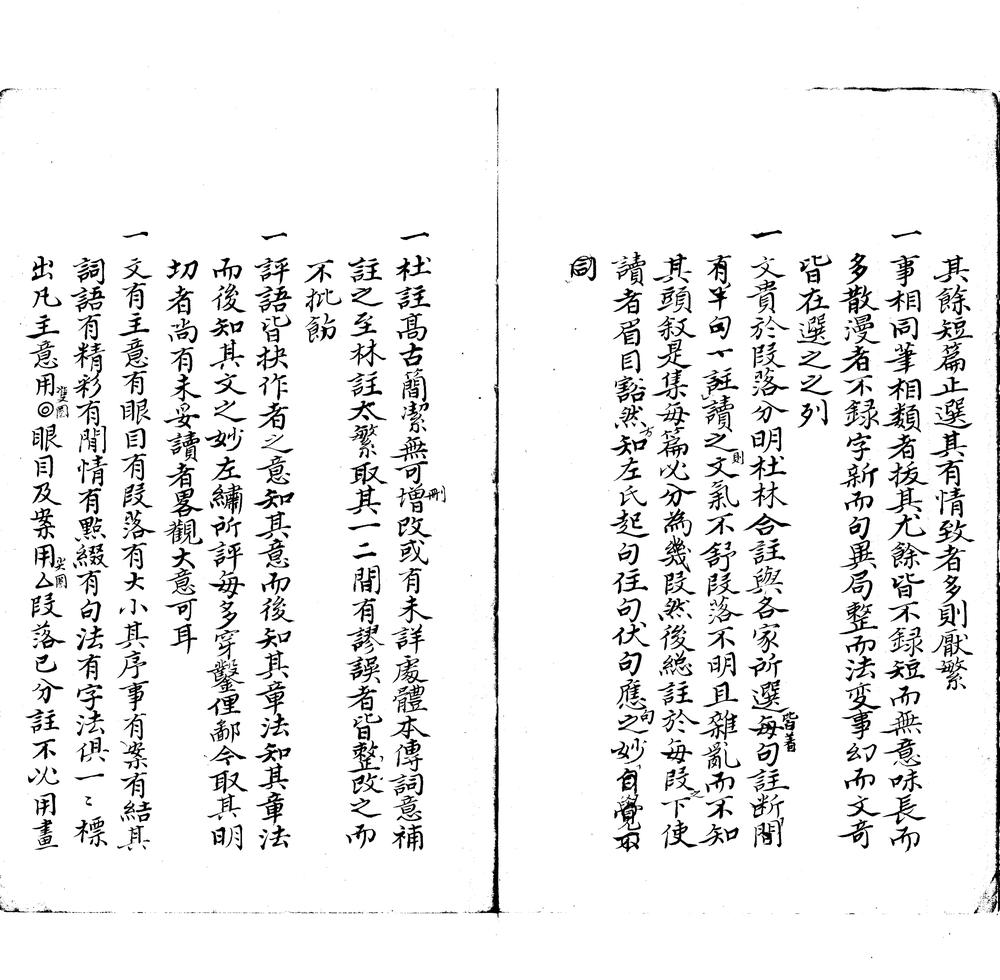 其餘短篇止選其有情致者多則厭繁
一事相同筆相類者拔其尤餘皆不錄短而無意味長而
多散漫者不録字新而句異局整而法変事幻而文奇
皆在選之之列
一文貴於段落分明杜林合註與各家所選每句註断間
皆著
有半句下註讀之文氣不舒段落不明且雜亂而不知
則
其頭叙是集每篇必分為幾段然後總註於每段下使
之
讀者眉目豁然知左氏起句住句伏句應之妙
方
句
同
一杜註高古簡潔無可增改或有未詳處體本傳詞意補
刪
註之至林註太繁取其一二間有謬誤者皆整改之而
不批飭
一評語皆抉作者之意知其意而後知其章法知其章法
而後知其文之妙左繡所評每多穿鑿俚鄙今取其明
切者尚有未妥讀者畧觀大意可耳
一文有主意有眼目有段落有大小其序事有案有結其
詞語有精彩有閒情有點綴有句法有字法俱一〻標
出凡主意用◎眼目及案用△段落已分註不必用畫